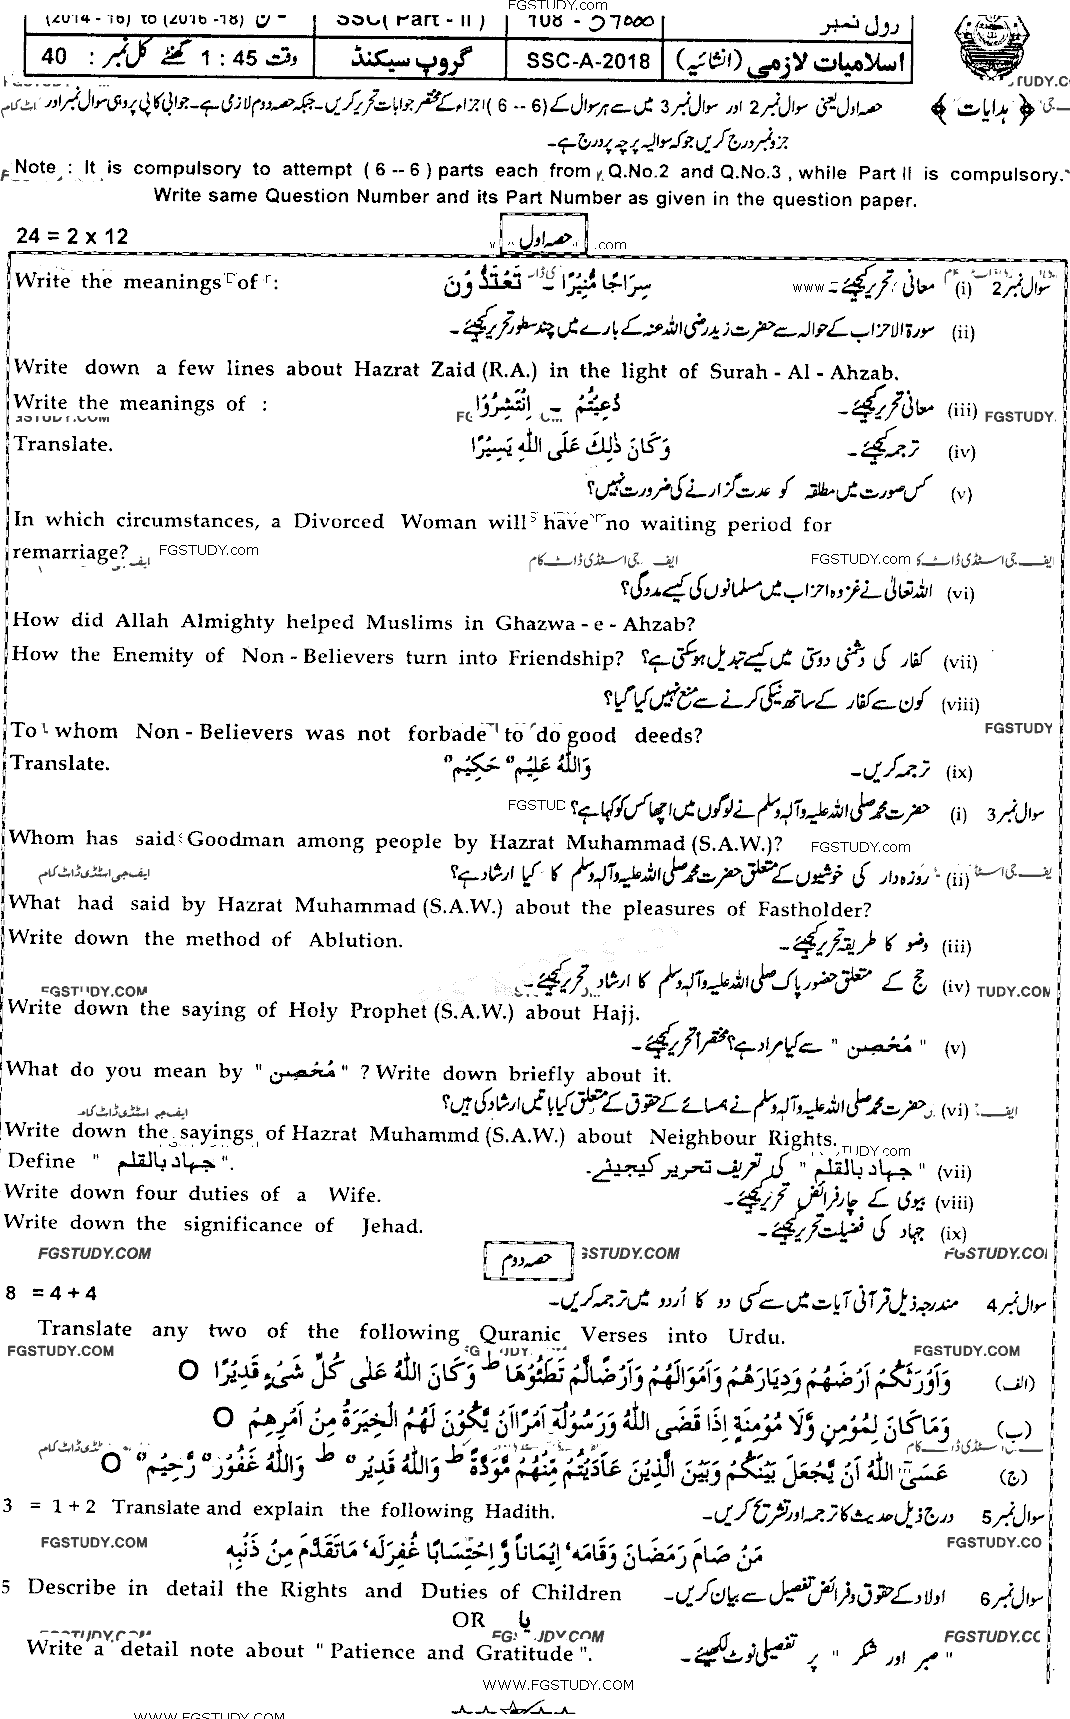 FGSTUDY.com
(2014 - 16) to (2016 -18) SSC( Part - II ) رول نمبر
اسلامیات لازمی (انشائیہ) SSC-A-2018 گروپ سیکنڈ وقت 1 : 45 گھنٹے کل نمبر : 40
﴿ ہدایات ﴾ حصہ اول یعنی سوال نمبر 2 اور سوال نمبر 3 میں سے ہر سوال کے (6 -- 6) اجزاء کے مختصر جوابات تحریر کریں۔ جبکہ حصہ دوم لازمی ہے۔ جوابی کاپی پر وہی سوال نمبر اور
جزو نمبر درج کریں جو کہ سوالیہ پرچہ پر درج ہے۔
Note : It is compulsory to attempt ( 6 -- 6 ) parts each from Q.No.2 and Q.No.3 , while Part II is compulsory.
Write same Question Number and its Part Number as given in the question paper.
24 = 2 x 12 حصہ اول .com
سوال نمبر 2 (i) معانی تحریر کیجئے۔ www سِرَاجًا مُّنِيْرًا ۔ تَعْتَدُّوْنَ Write the meanings of :
(ii) سورۃ الاحزاب کے حوالہ سے حضرت زید رضی اللہ عنہ کے بارے میں چند سطور تحریر کیجئے۔
Write down a few lines about Hazrat Zaid (R.A.) in the light of Surah - Al - Ahzab.
(iii) معانی تحریر کیجئے۔ دُعِيْتُمْ ۔ اِنْتَشِرُوْا Write the meanings of :
FGSTUDY.
(iv) ترجمہ کیجئے۔ وَكَانَ ذٰلِكَ عَلَى اللّٰهِ يَسِيْرًا Translate.
(v) کس صورت میں مطلقہ کو عدت گزارنے کی ضرورت نہیں؟
In which circumstances, a Divorced Woman will have no waiting period for
remarriage? FGSTUDY.com ایف جی اسٹڈی ڈاٹ کام FGSTUDY.com
(vi) اللہ تعالیٰ نے غزوہ احزاب میں مسلمانوں کی کیسے مدد کی؟
How did Allah Almighty helped Muslims in Ghazwa - e - Ahzab?
(vii) کفار کی دشمنی دوستی میں کیسے تبدیل ہوسکتی ہے؟ How the Enemity of Non - Believers turn into Friendship?
(viii) کون سے کفار کے ساتھ نیکی کرنے سے منع نہیں کیا گیا؟
To whom Non - Believers was not forbade to do good deeds? FGSTUDY
(ix) ترجمہ کریں۔ وَاللّٰهُ عَلِيْمٌ حَكِيْمٌ Translate.
سوال نمبر 3 (i) حضرت محمد صلی اللہ علیہ وآلہ وسلم نے لوگوں میں اچھا کس کو کہا ہے؟ FGSTUD
Whom has said Goodman among people by Hazrat Muhammad (S.A.W.)? FGSTUDY.com
(ii) روزہ دار کی خوشیوں کے متعلق حضرت محمد صلی اللہ علیہ وآلہ وسلم کا کیا ارشاد ہے؟ ایف جی اسٹڈی ڈاٹ کام
What had said by Hazrat Muhammad (S.A.W.) about the pleasures of Fastholder?
(iii) وضو کا طریقہ تحریر کیجئے۔ Write down the method of Ablution.
(iv) حج کے متعلق حضور پاک صلی اللہ علیہ وآلہ وسلم کا ارشاد تحریر کیجئے۔ FGSTUDY.COM TUDY.COM
Write down the saying of Holy Prophet (S.A.W.) about Hajj.
(v) " مُحْصِن " سے کیا مراد ہے؟ مختصراً تحریر کیجئے۔
What do you mean by " مُحْصِن " ? Write down briefly about it.
(vi) حضرت محمد صلی اللہ علیہ وآلہ وسلم نے ہمسائے کے حقوق کے متعلق کیا باتیں ارشاد کی ہیں؟ ایف جی اسٹڈی ڈاٹ کام
Write down the sayings of Hazrat Muhammd (S.A.W.) about Neighbour Rights.
(vii) " جہاد بالقلم " کی تعریف تحریر کیجیئے۔ Define " جہاد بالقلم ".
(viii) بیوی کے چار فرائض تحریر کیجئے۔ Write down four duties of a Wife.
(ix) جہاد کی فضیلت تحریر کیجئے۔ Write down the significance of Jehad.
FGSTUDY.COM حصہ دوم GSTUDY.COM FGSTUDY.CO
سوال نمبر 4 مندرجہ ذیل قرآنی آیات میں سے کسی دو کا اُردو میں ترجمہ کریں۔ 8 = 4 + 4
Translate any two of the following Quranic Verses into Urdu.
FGSTUDY.COM FGSTUDY.COM
(الف) وَاَوْرَثَكُمْ اَرْضَهُمْ وَدِيَارَهُمْ وَاَمْوَالَهُمْ وَاَرْضًا لَّمْ تَطَئُوْهَا ط وَكَانَ اللّٰهُ عَلٰى كُلِّ شَىْءٍ قَدِيْرًا O
(ب) وَمَا كَانَ لِمُؤْمِنٍ وَّلَا مُؤْمِنَةٍ اِذَا قَضَى اللّٰهُ وَرَسُوْلُهٗٓ اَمْرًا اَنْ يَّكُوْنَ لَهُمُ الْخِيَرَةُ مِنْ اَمْرِهِمْ O
(ج) عَسَى اللّٰهُ اَنْ يَّجْعَلَ بَيْنَكُمْ وَبَيْنَ الَّذِيْنَ عَادَيْتُمْ مِّنْهُمْ مَّوَدَّةً ط وَاللّٰهُ قَدِيْرٌ ط وَاللّٰهُ غَفُوْرٌ رَّحِيْمٌ O
سوال نمبر 5 درج ذیل حدیث کا ترجمہ اور تشریح کریں۔ 3 = 1 + 2 Translate and explain the following Hadith.
FGSTUDY.COM مَنْ صَامَ رَمَضَانَ وَقَامَهٗ اِيْمَاناً وَّاِحْتِسَابًا غُفِرَلَهٗ مَاتَقَدَّمَ مِنْ ذَنْۢبِهٖ FGSTUDY.CO
سوال نمبر 6 اولاد کے حقوق و فرائض تفصیل سے بیان کریں۔ 5 Describe in detail the Rights and Duties of Children
OR یا
FGSTUDY.CO
" صبر اور شکر " پر تفصیلی نوٹ لکھیئے۔ Write a detail note about " Patience and Gratitude ".
WWW.FGSTUDY.COM
WWW.FGSTUDY.COM